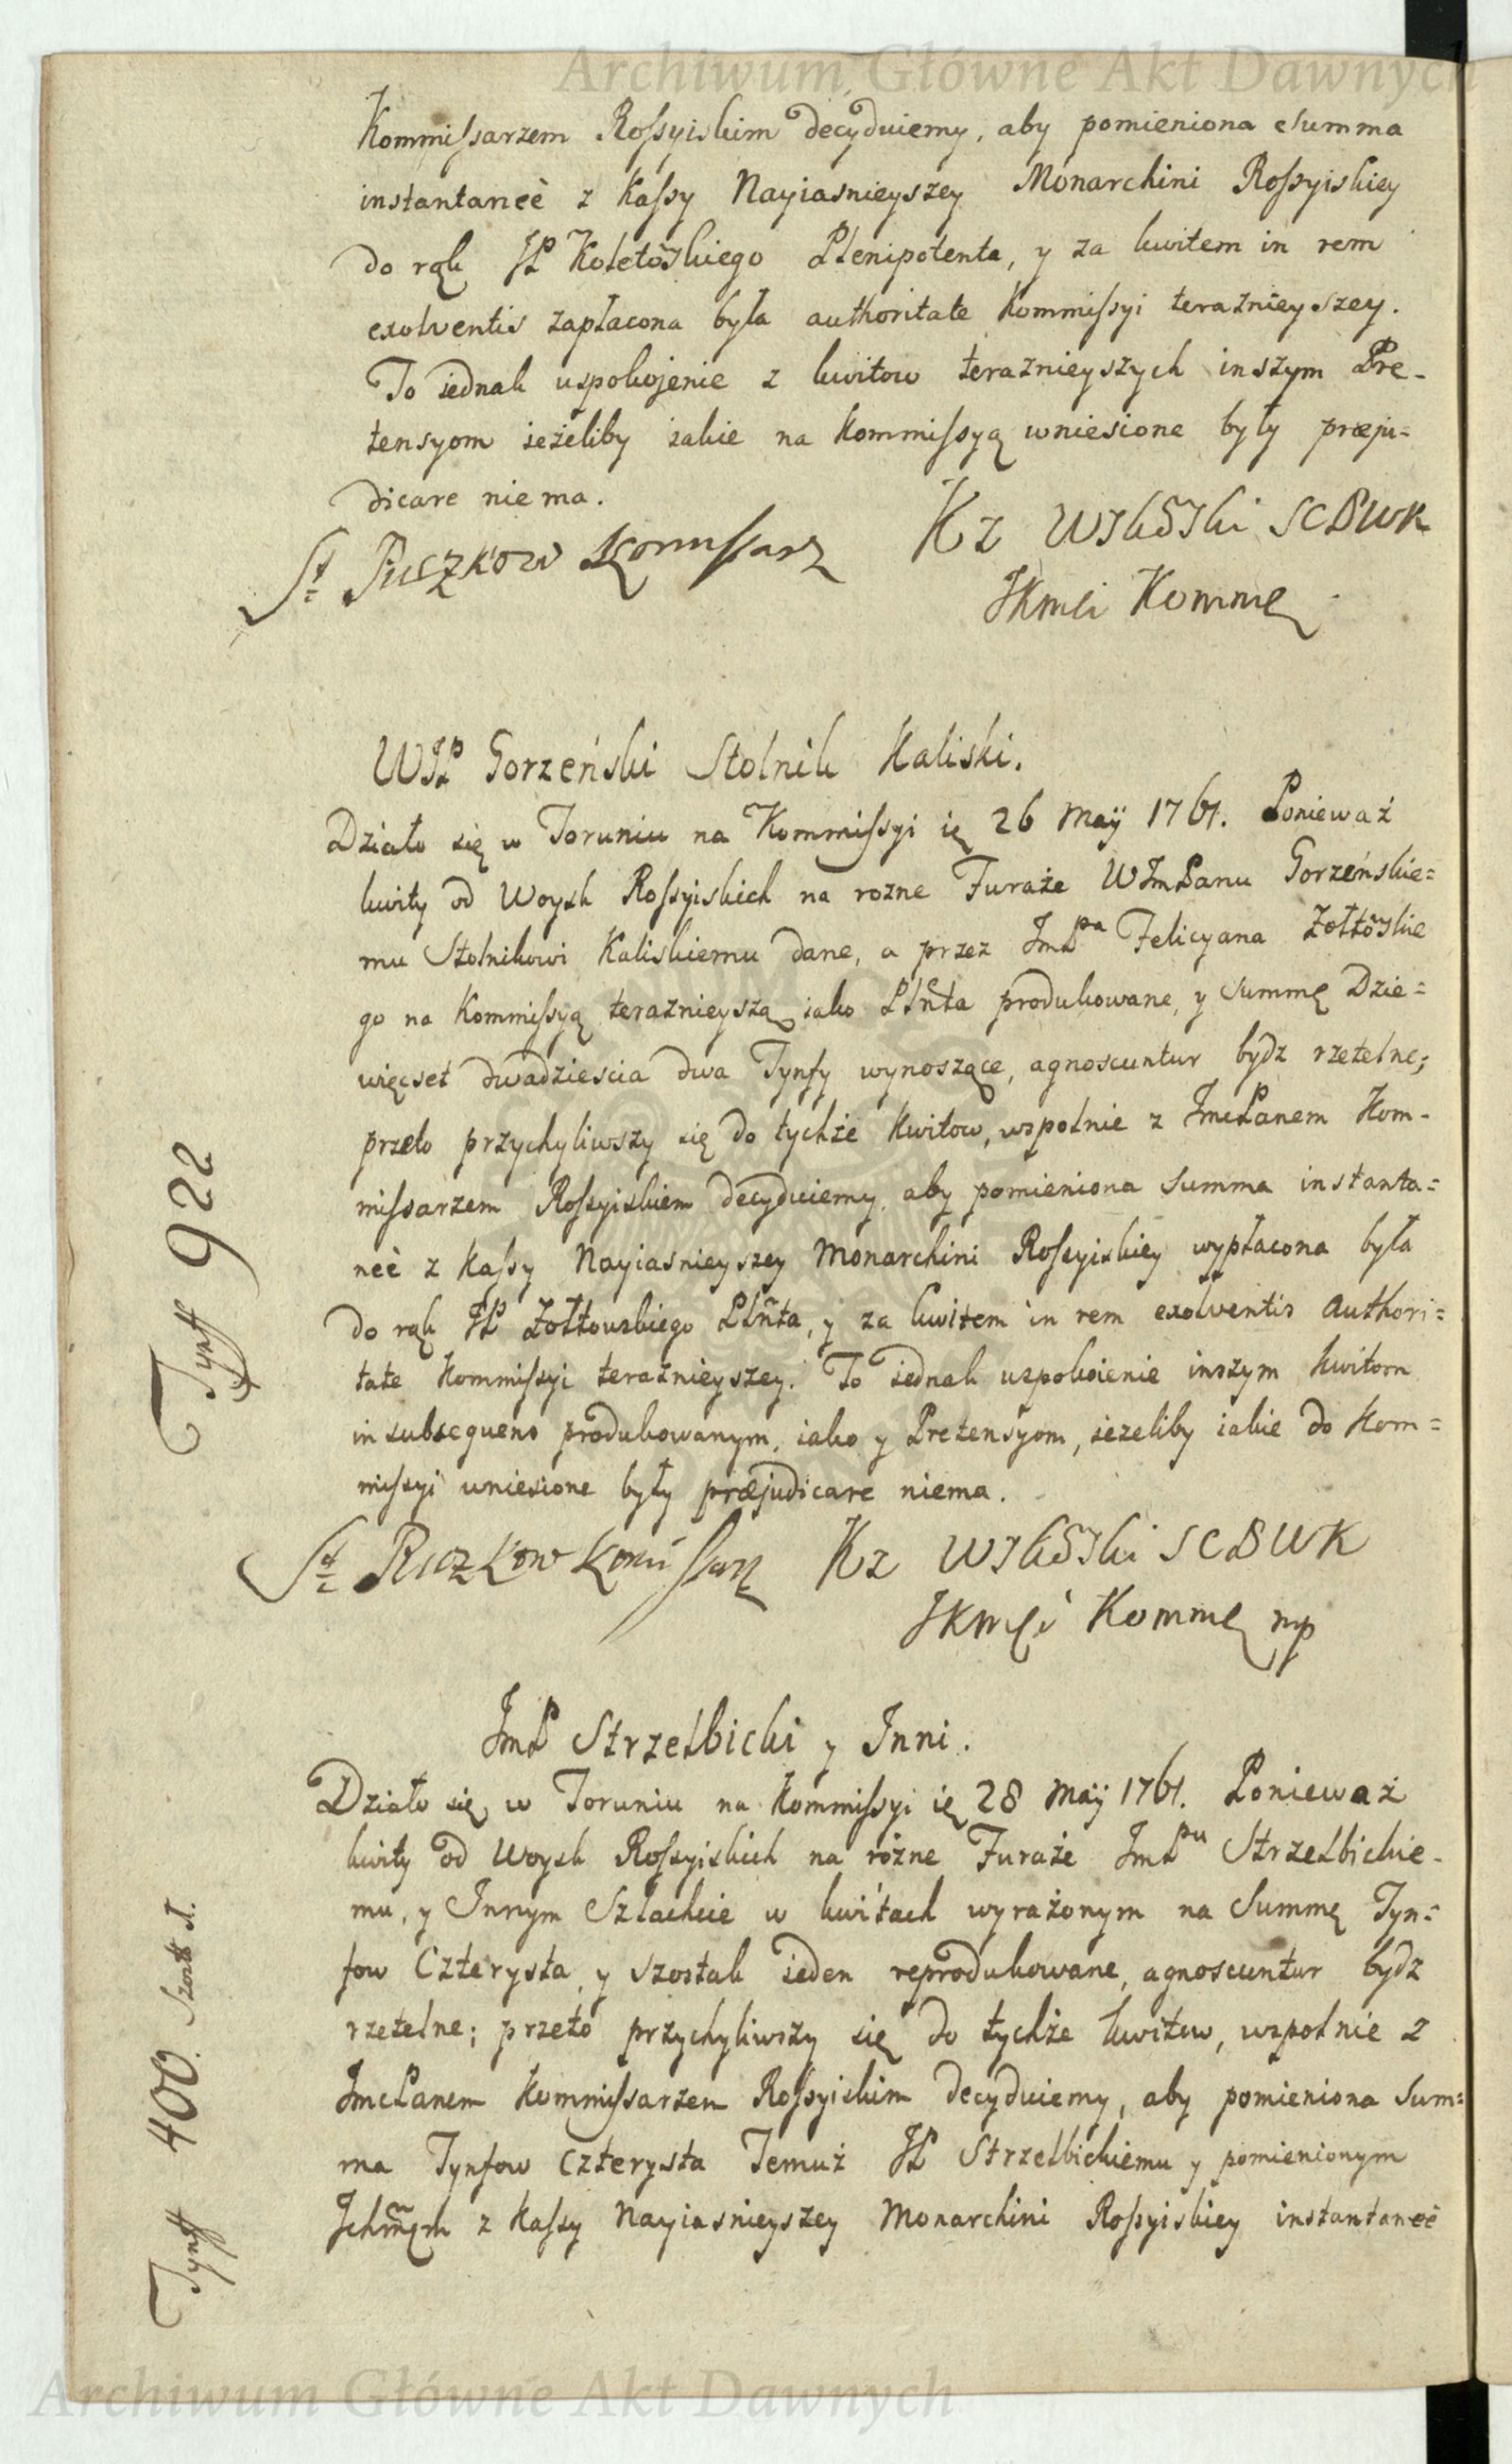 Archiwum Główne Akt Dawnych
Kommissarzem Rossyiskim decyduiemy, aby pomieniona Summa
instantaneè z Kassy Nayiasnieyszey Monarchini Rossyiskiey
do rąk JP Plenipotenta, y za kwitem in rem
exolventis zapłacona była authoritate Kommissyi teraznieyszey.
To iednak uspokojenie z kwitow teraznieyszych inszym Pre-
tensyom ieżeliby iakie na Kommissyą wniesione były præju=
dicare nie ma.
St Puczkow Komissarz Kz SCBWK
JKmci Kommę
WJP Gorzeński Stolnik Kaliski.
Działo się w Toruniu na Kommissyi ię 26 Maÿ 1761. Ponieważ
kwity od Woysk Rossyiskich na rozne Furaże WJmPanu Gorzeńskie=
mu Stolnikowi Kaliskiemu dane, a przez JmPna Felicyana Żołtõskie
go na Kommissyą teraznieyszą iako Plñta produkowane, y Summę Dzie=
więcset dwadziescia dwa Tynfy wynoszące, agnoscuntur bydz rzetelne;
przeto przychyliwszy się do tychże Kwitow, wspolnie z JmcPanem Kom-
missarzem Rossyiskiem decyduiemy, aby pomieniona Summa instanta=
neè z Kassy Nayiasnieyszey Monarchini Rossyiskiey wypłacona była
do rąk JP Żołtowskiego Plñta, y za kwitem in rem exolventis Authori=
tate Kommissyi teraznieyszey. To iednak uspokoienie inszym kwitom
in subsequens produkowanym, iako y Pretensyom, ieżeliby iakie do Kom=
missyi wniesione były præjudicare niema.
Tynff 922
St Puczkow Komissarz Kz SCBWK
JKmci Kommę mp
JmP Strzelbicki y Inni.
Działo się w Toruniu na Kommissyi ię 28 Maÿ 1761. Ponieważ
kwity od Woysk Rossyiskich na różne Furaże JmPnu Strzelbickie-
mu, y Innym Szlachcie w kwitach wyrażonym na Summę Tyn=
fow Czterysta, y szostak ieden reprodukowane, agnoscuntur bydz
rzetelne; przeto przychyliwszy się do tychże kwitow, wspolnie z
JmcPanem Kommissarzem Rossyiskim decyduiemy, aby pomieniona Sum=
ma Tynfow Czterysta Temuż JP Strzelbickiemu y pomienionym
z Kassy Nayiasnieyszey Monarchini Rossyiskiey instantaneè
Tynff 400. Szost 1.
Archiwum Główne Akt Dawnych